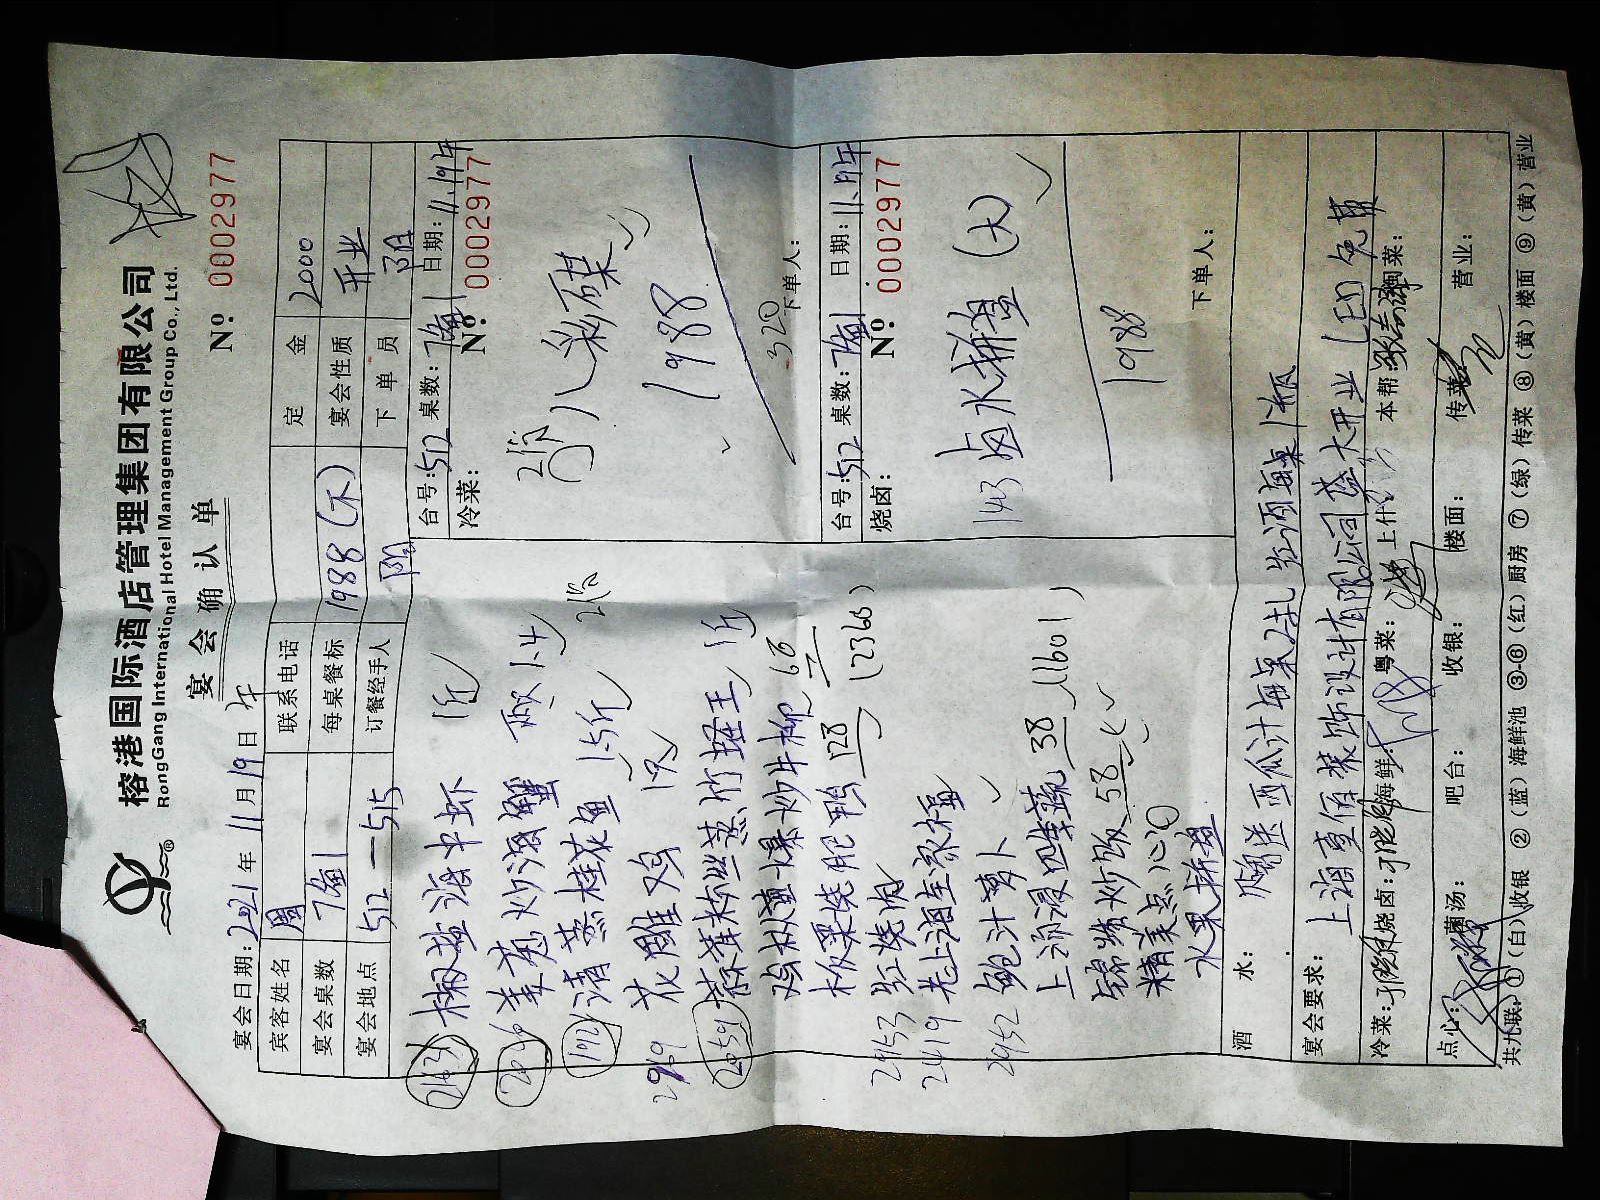 榕港国际酒店管理集团有限公司
RongGang International Hotel Management Group Co., Ltd.
宴会确认单
Nº 0002977
宴会日期: 2021年 11月19日 午
宾客姓名 周 联系电话 定金 2000
宴会桌数 每桌餐标 1988 宴会性质 开业
宴会地点 512—515 订餐经手人 下单员
台号: 512 桌数: 日期: 11.19午
冷菜: Nº 0002977
八彩碟
1988
320
下单人:
台号: 512 桌数: 日期: 11.19午
烧卤: Nº 0002977
143 卤水拼盘 (大)
1988
下单人:
椒盐海中虾 1斤
姜葱炒海蟹
清蒸桂花鱼 1.5斤
2969 花雕鸡 1只
2059 蒜茸粉丝蒸竹蛏王 1斤
爆炒牛柳 68
板栗烧肥鸭 128 (2368)
2953 红烧肉
2419 老上海全家福
2952 鲍汁萝卜
上汤浸四季蔬 38 (1601)
锦绣炒饭 58
精美点心
水果拼盘
酒水: 赠送西瓜汁每桌2扎 红酒每桌1瓶
宴会要求: 上海 装饰设计有限公司盛大开业 LED免费
冷菜: 烧卤: 海鲜: 粤菜: 上什: 本帮: 湘菜:
点心: 羹汤: 吧台: 收银: 楼面: 传菜: 营业:
共九联: ①(白)收银 ②(蓝)海鲜池 ③-⑥(红)厨房 ⑦(绿)传菜 ⑧(黄)楼面 ⑨(黄)营业